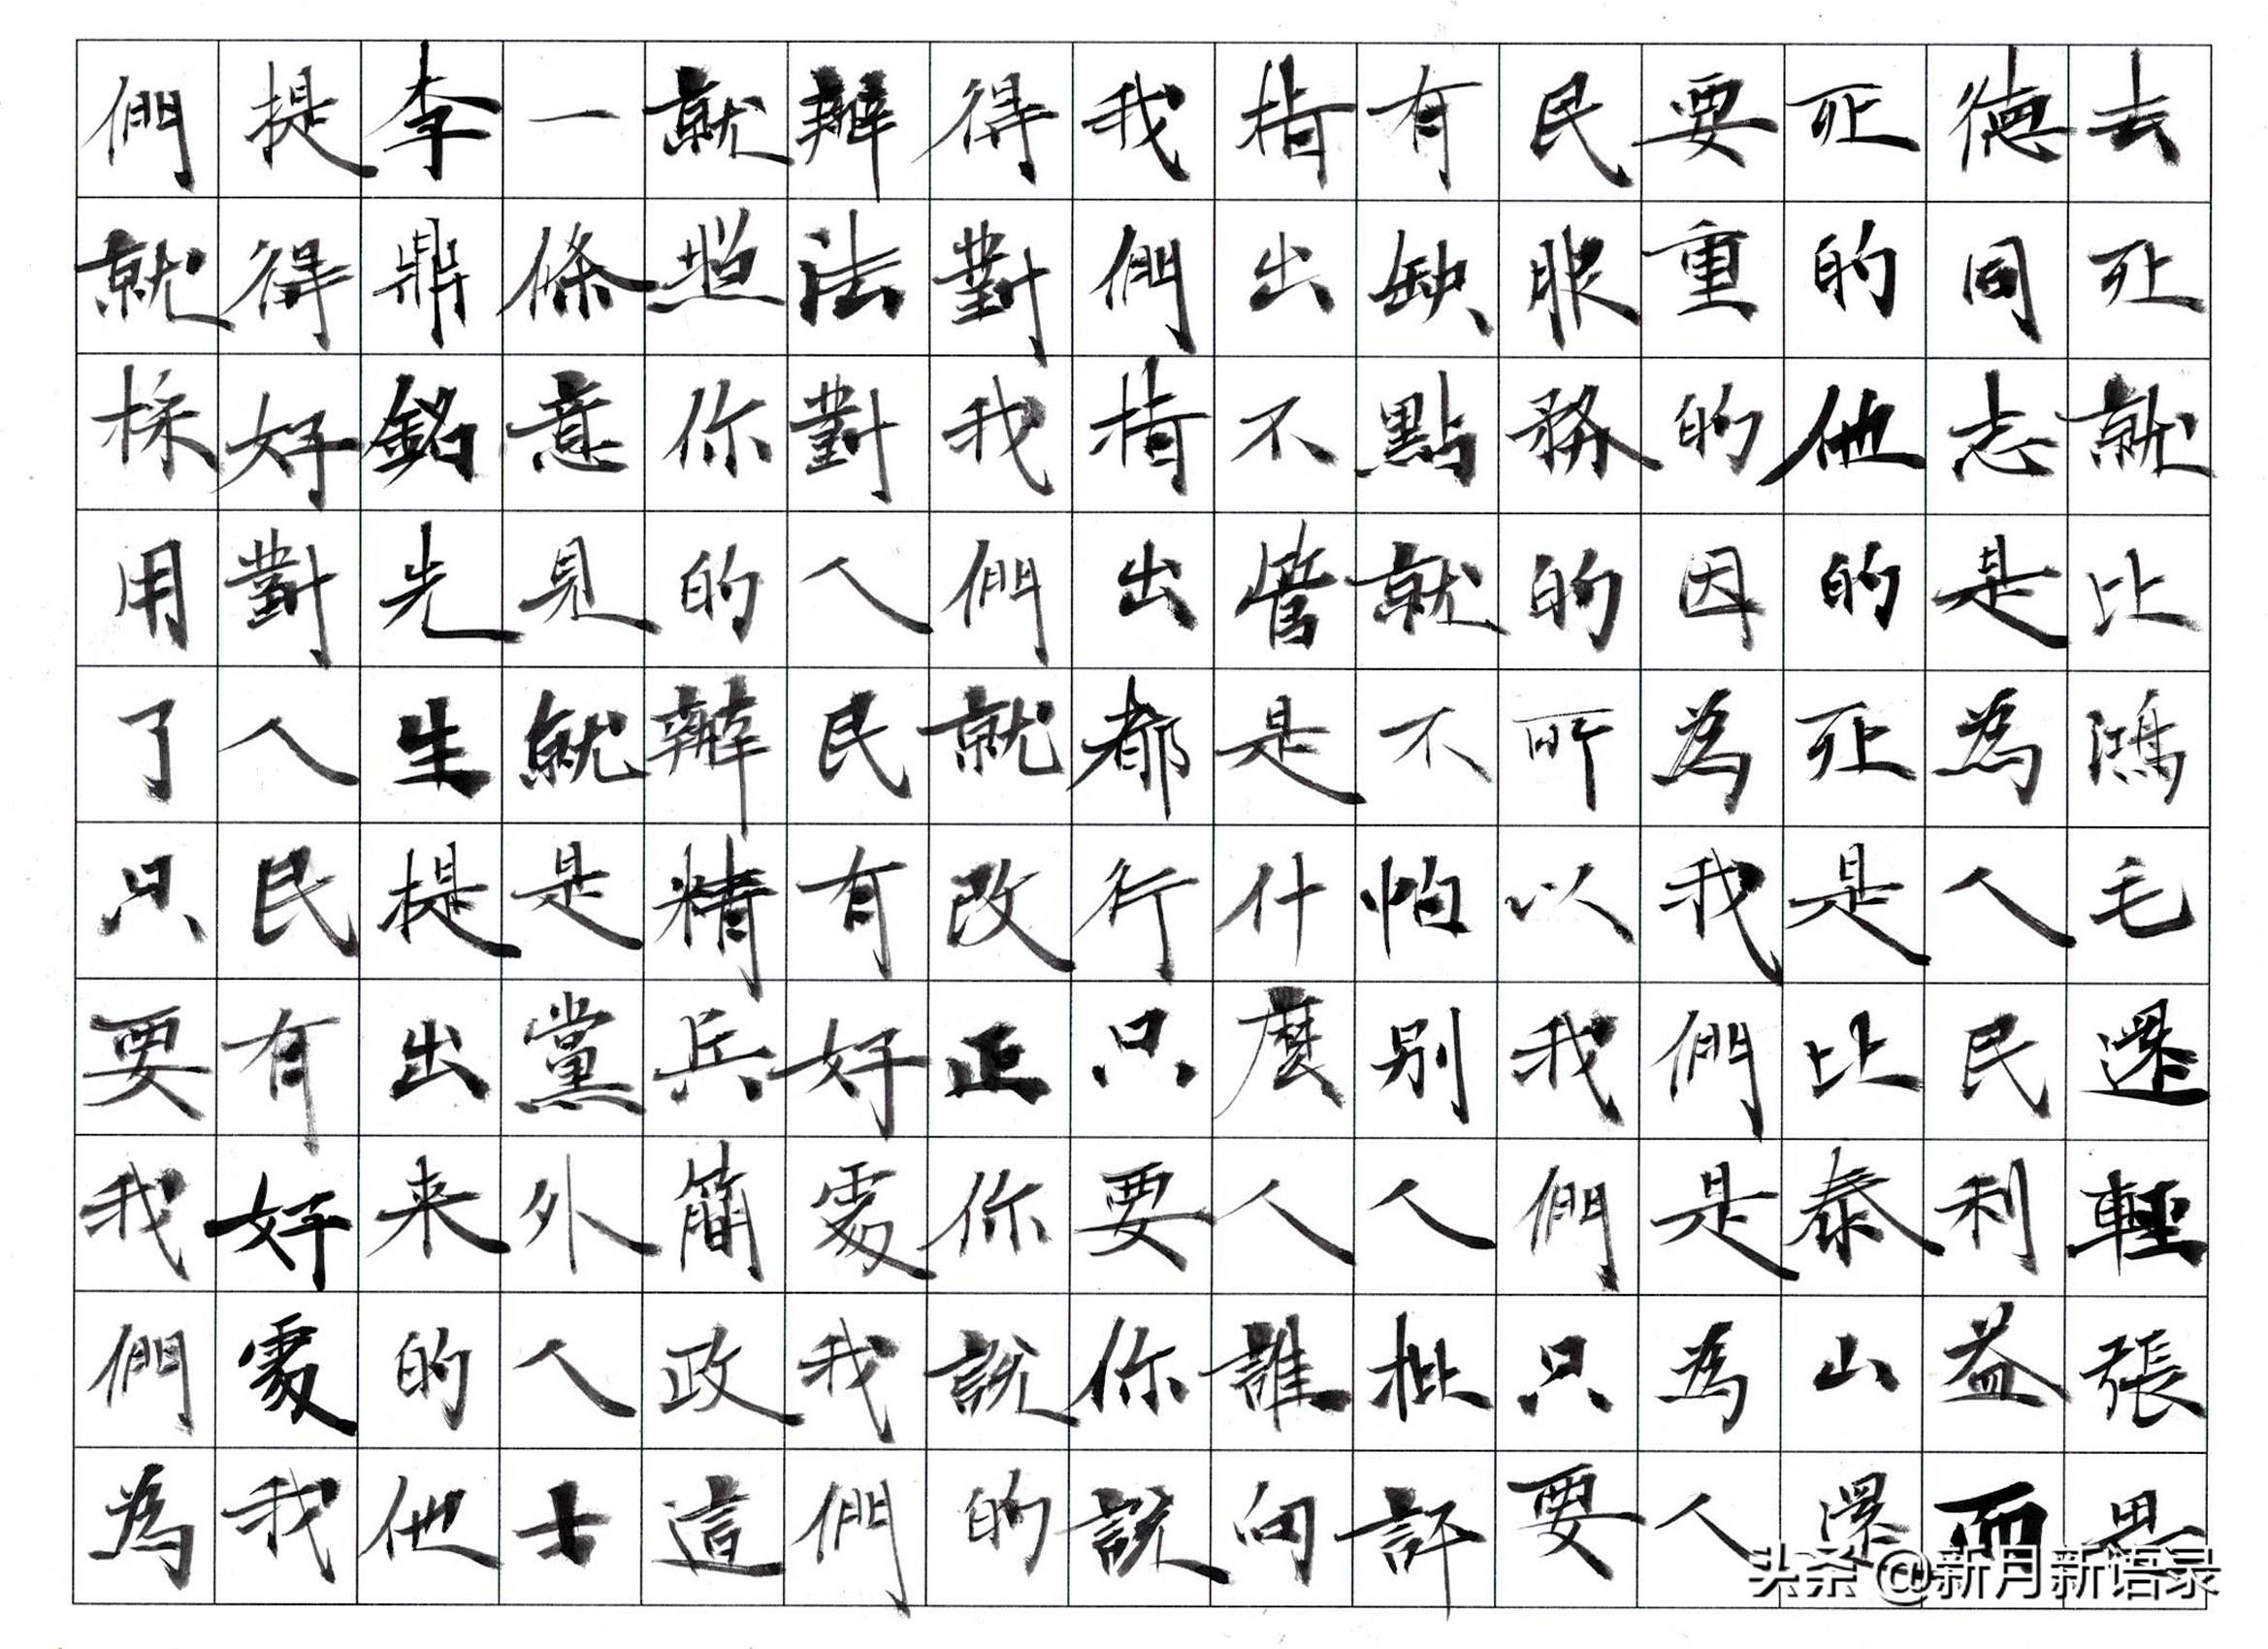 去死就比鴻毛還輕張思
德同志是為人民利益而
死的他的死是比泰山還
要重的因為我們是為人
民服務的所以我們只要
有缺點就不怕別人批評
指出不管是什麼人誰向
我們指出都行只要你說
得對我們就改正你說的
辦法對人民有好處我們
就照你的辦精兵簡政這
一條意見就是黨外人士
李鼎銘先生提出来的他
提得好對人民有好處我
們就採用了只要我們為
头条 @新月新语录